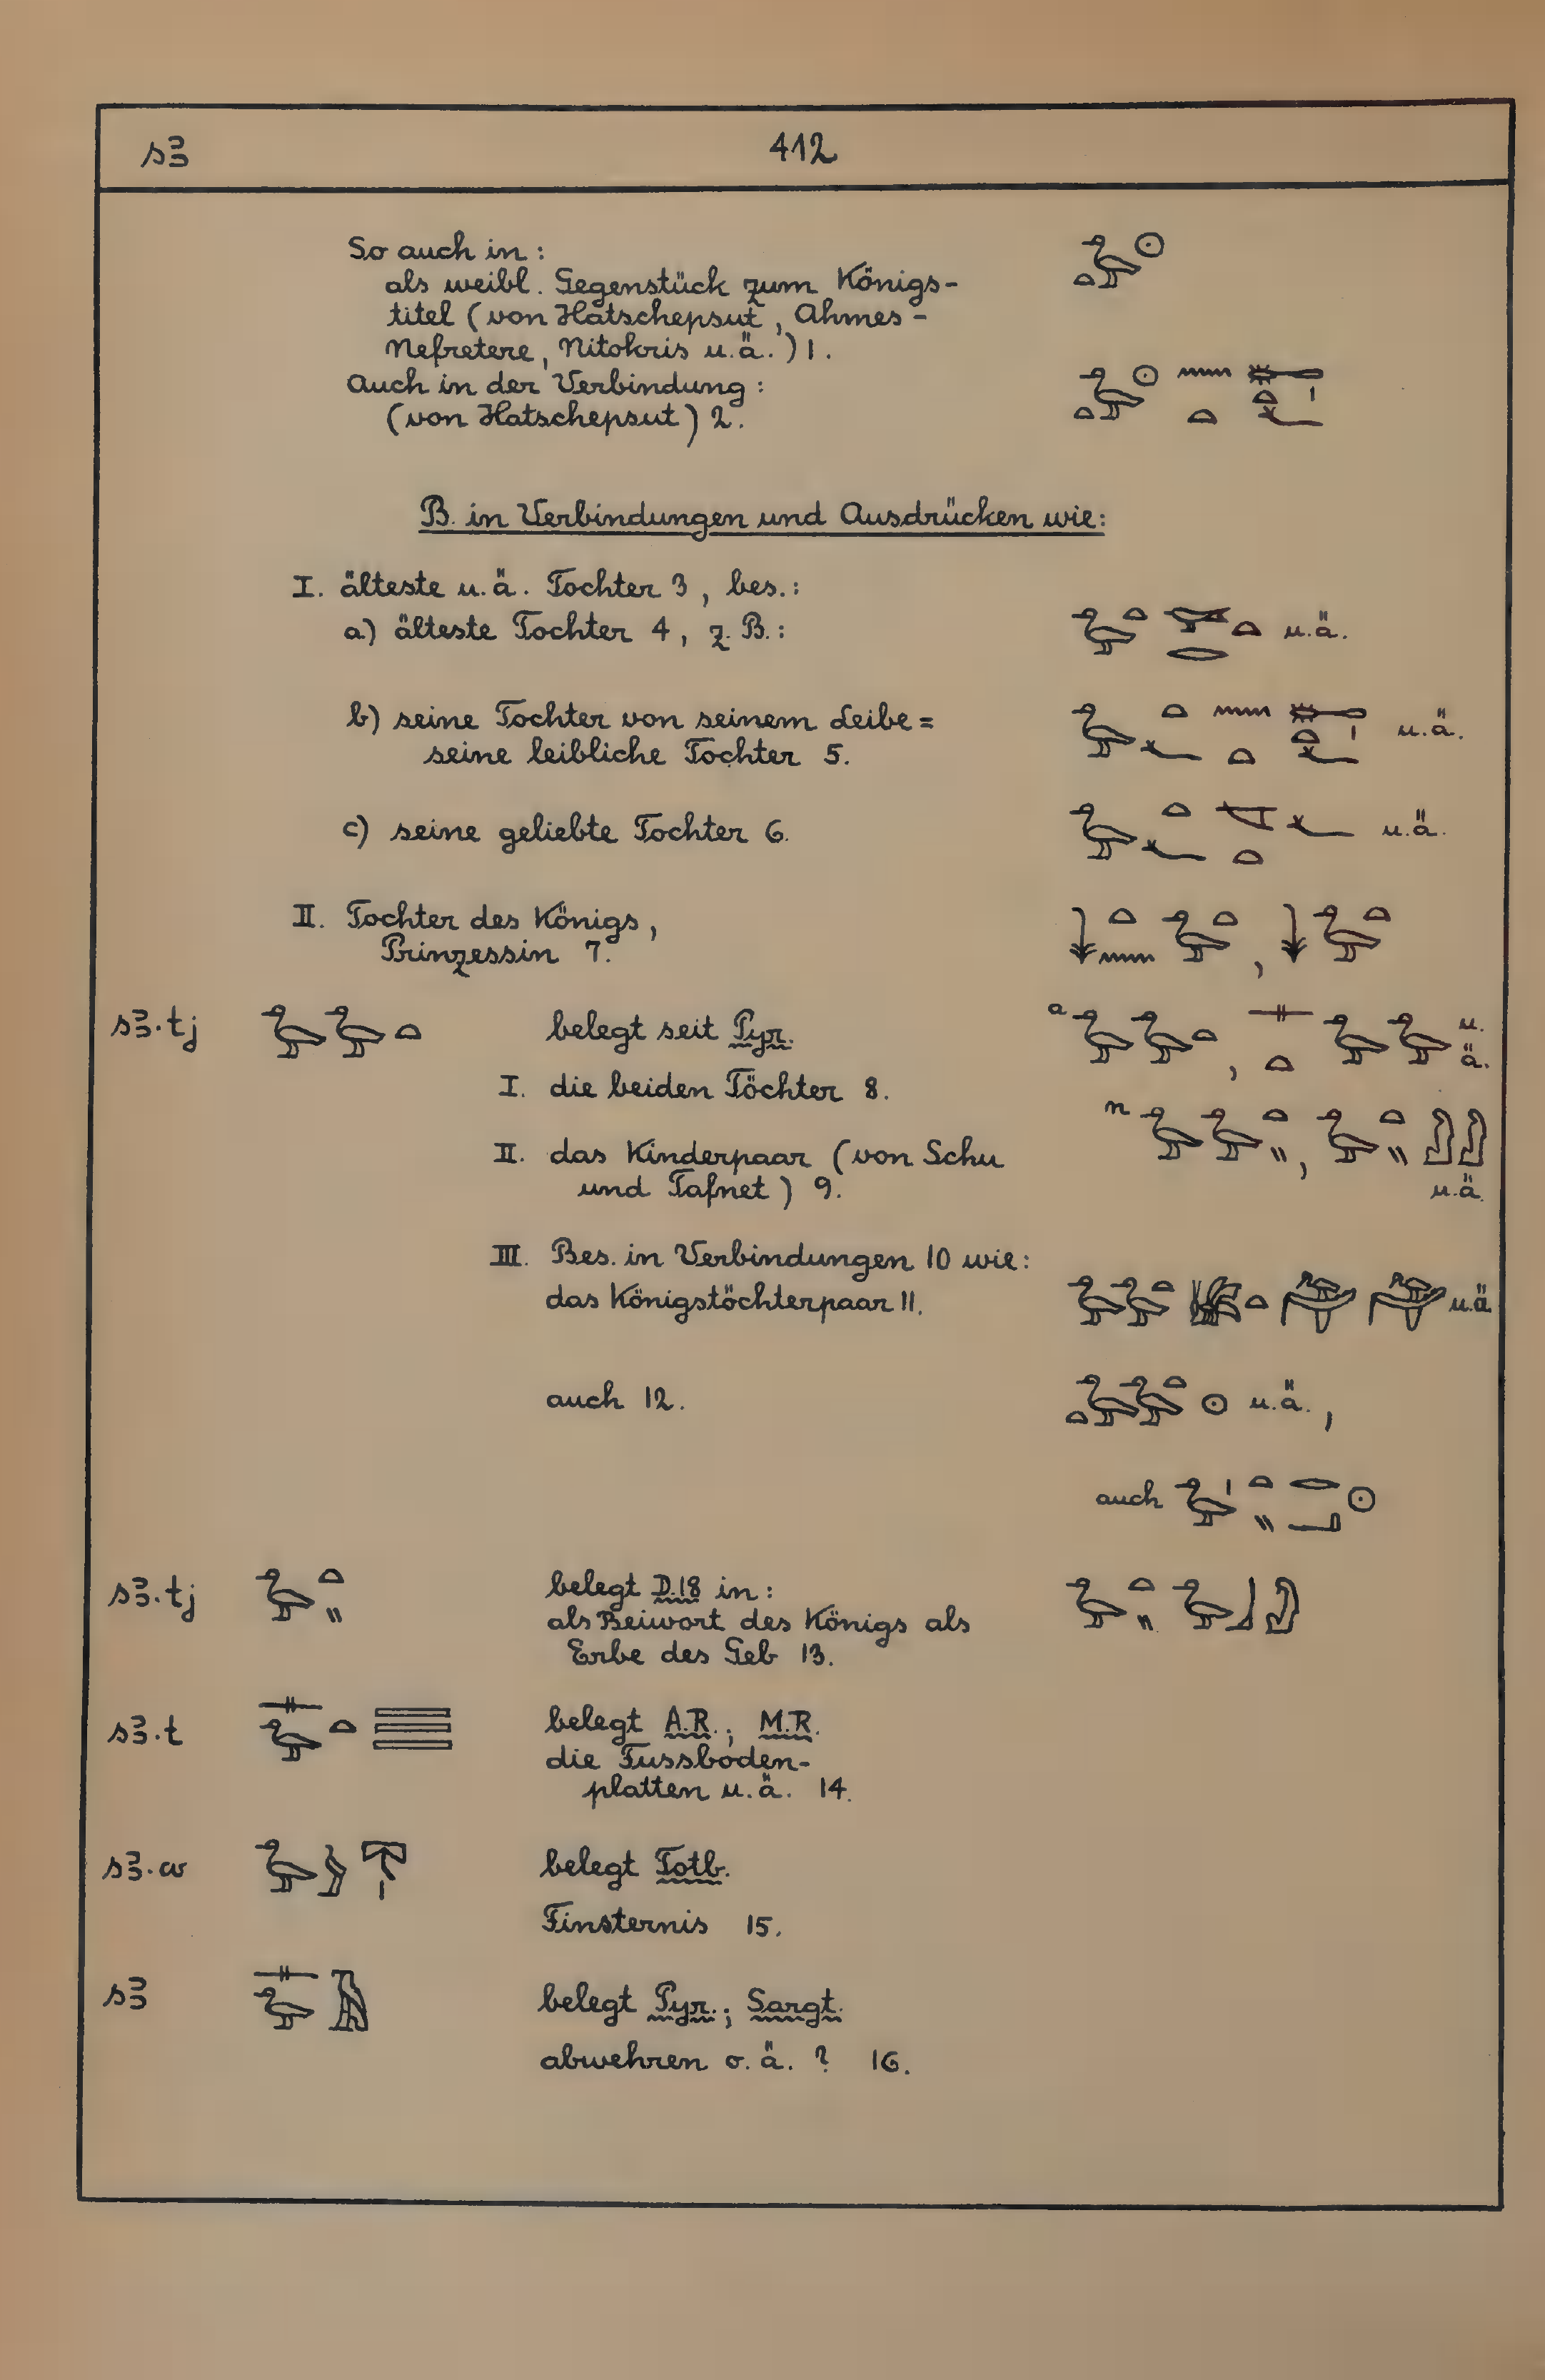 sꜣ 412
So auch in: 𓅭𓏏𓇳
als weibl. Gegenstück zum Königs-
titel (von Hatschepsut, Ahmes-
Nefretere, Nitokris u.ä.) 1.
Auch in der Verbindung: 𓅭𓏏𓇳𓈖𓏏𓄡𓏏𓏤𓆑
(von Hatschepsut) 2.
B. in Verbindungen und Ausdrücken wie:
I. älteste u.ä. Tochter 3, bes.:
a) älteste Tochter 4, z.B.: 𓅭𓏏𓅨𓂋𓏏 u.ä.
b) seine Tochter von seinem Leibe = 𓅭𓏏𓆑𓈖𓏏𓄡𓏏𓏤𓆑 u.ä.
seine leibliche Tochter 5.
c) seine geliebte Tochter 6. 𓅭𓏏𓆑𓌸𓏏𓆑 u.ä.
II. Tochter des Königs, 𓇓𓏏𓈖𓅭𓏏, 𓇓𓅭𓏏
Prinzessin 7.
sꜣ.tj 𓅭𓅭𓏏 belegt seit Pyr. a 𓅭𓅭𓏏, 𓊃𓏏𓅭𓅭 u.ä.
I. die beiden Töchter 8. n 𓅭𓅭𓏏𓏭, 𓅭𓏏𓏭 u.ä.
II. das Kinderpaar (von Schu
und Tafnet) 9.
III. Bes. in Verbindungen 10 wie:
das Königstöchterpaar 11. 𓅭𓅭𓏏 u.ä.
auch 12. 𓏏𓅭𓅭𓏏𓇳 u.ä.,
auch 𓅭𓏤𓏏𓏭𓂋𓂝𓇳
sꜣ.tj 𓅭𓏏𓏭 belegt D.18 in: 𓅭𓏏𓏭𓅭𓃀𓀭
als Beiwort des Königs als
Erbe des Geb 13.
sꜣ.t 𓊃𓅭𓏏𓈇 belegt A.R.; M.R.
die Fussboden-
platten u.ä. 14.
sꜣ.w 𓅭 belegt Totb.
Finsternis 15.
sꜣ 𓊃𓅭 belegt Pyr.; Sargt.
abwehren o.ä. ? 16.